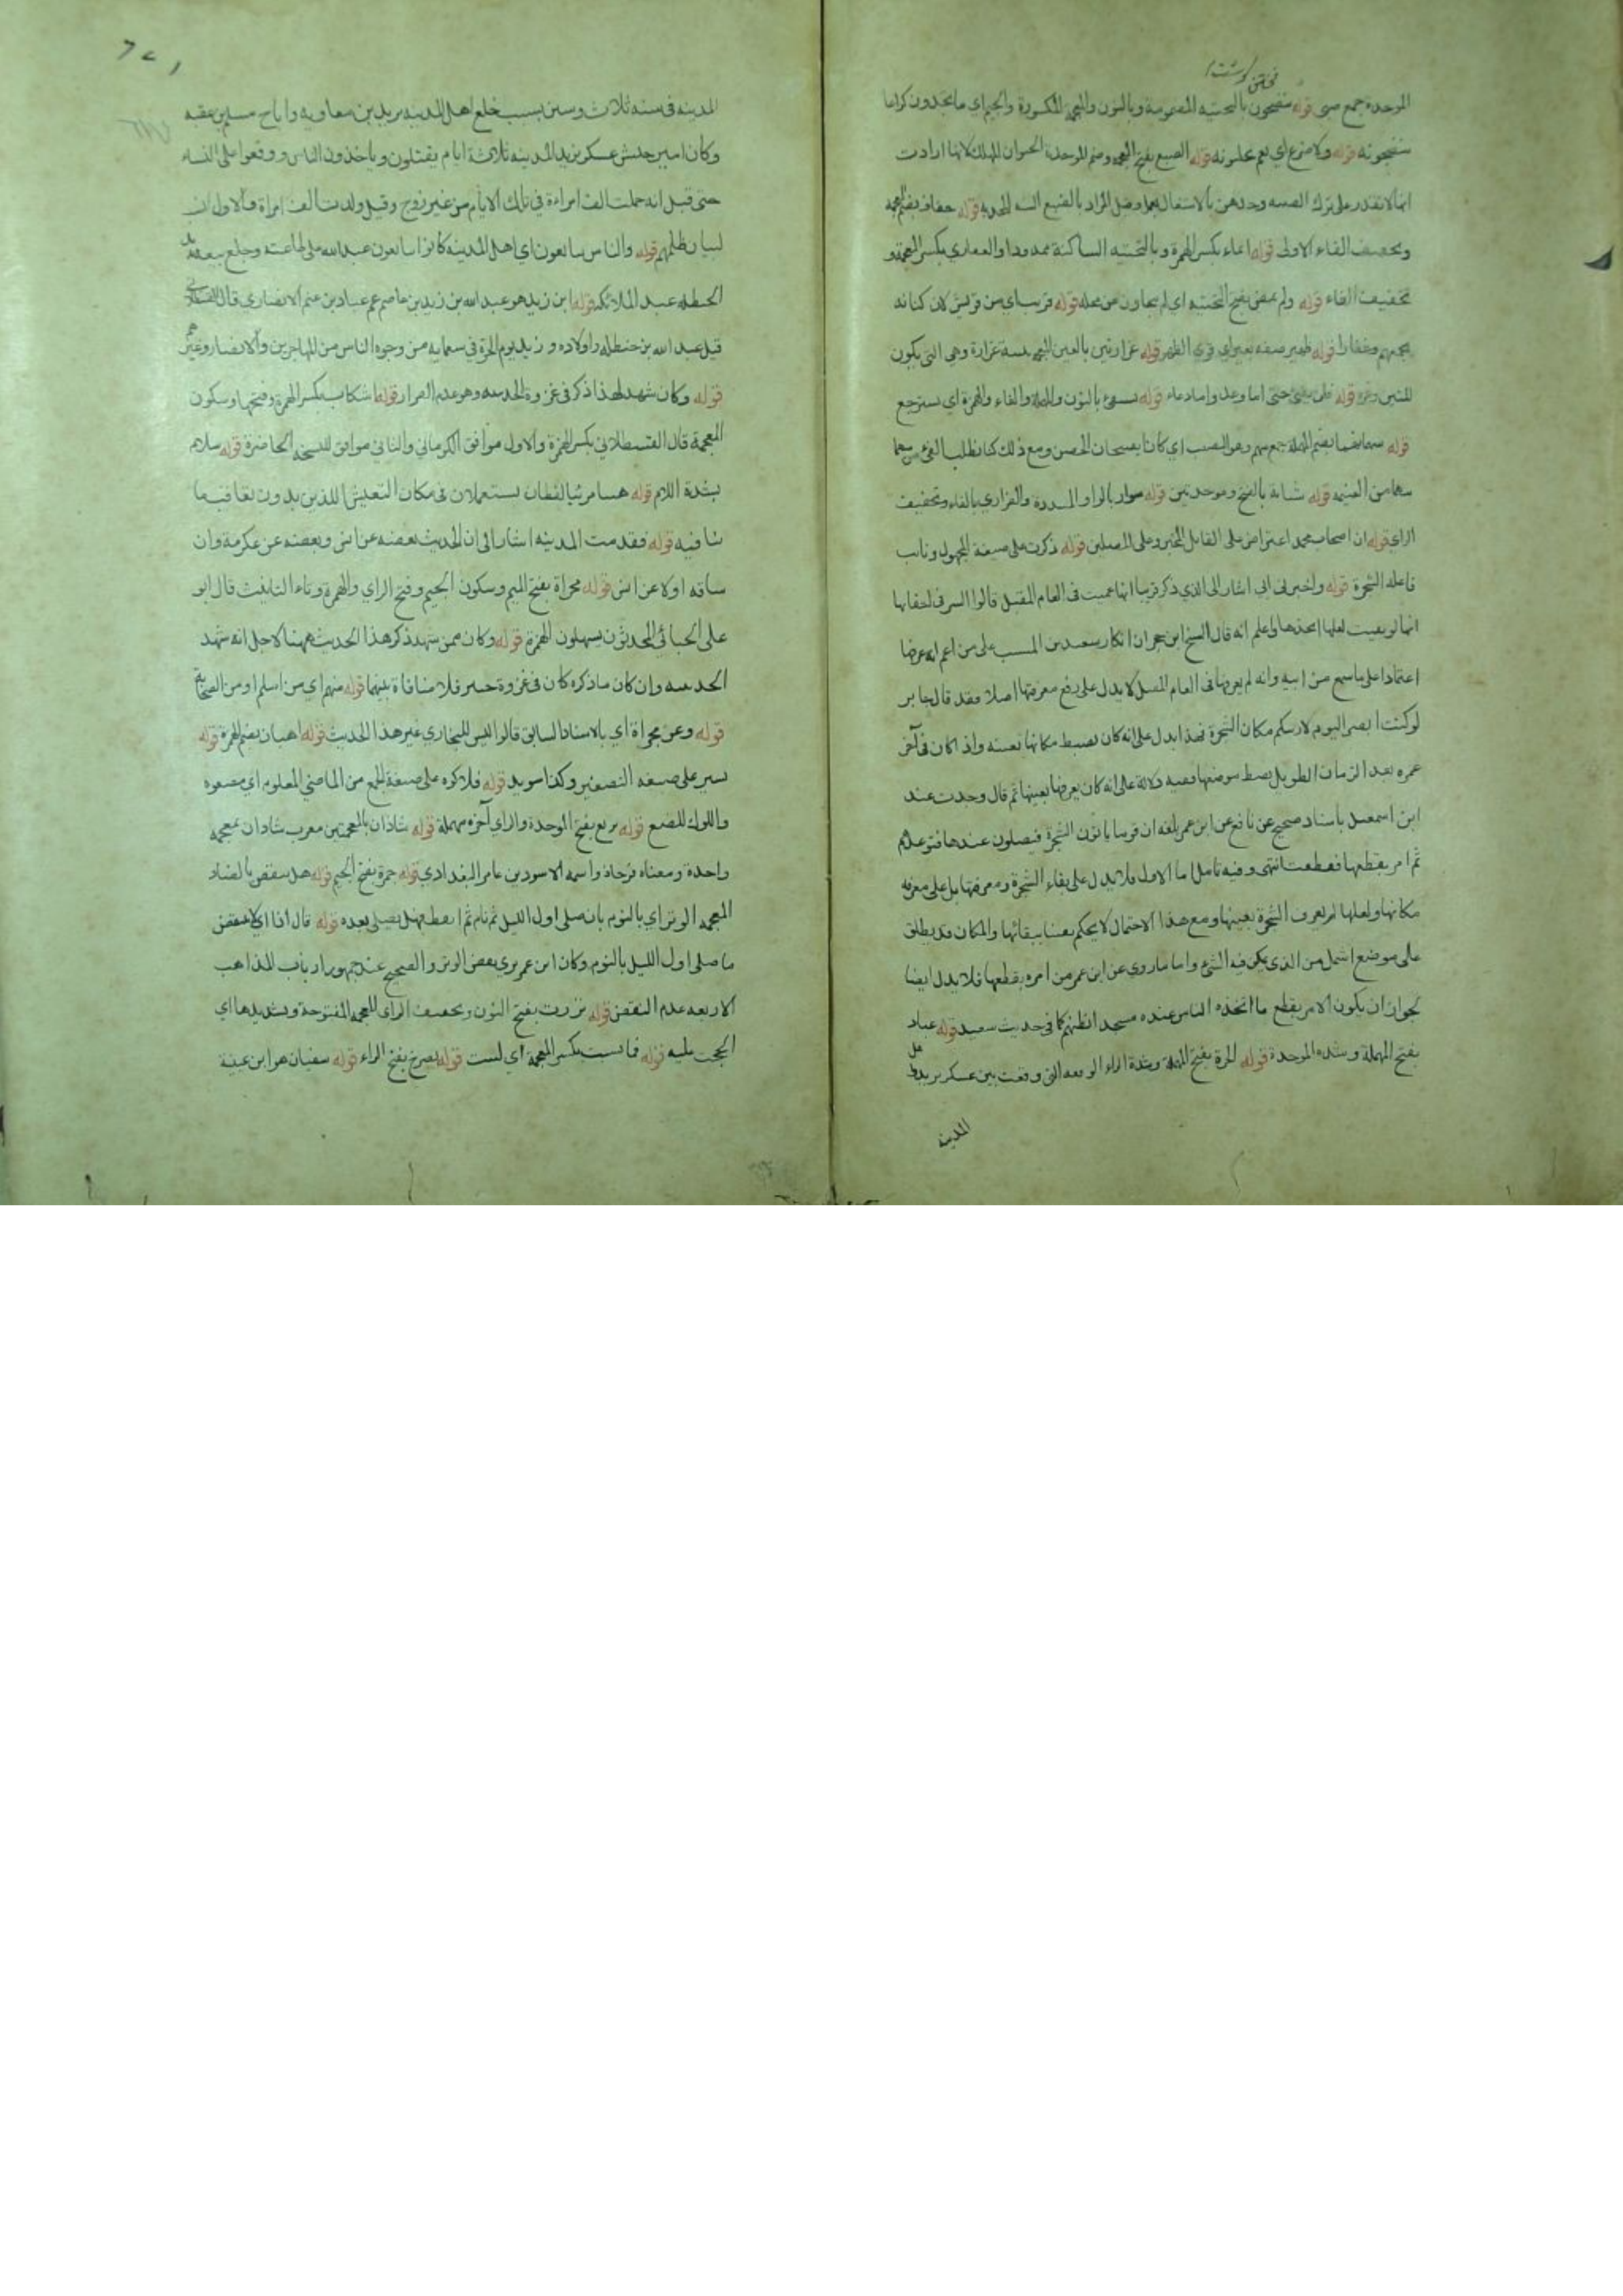 الموحدة جمع صبى قوله ينضجون بالتحتيه المضمومة وبالنون والمعجمة المكسورة والجيم اى ما يجدون كراعا
ينضجونه قوله ولا ضرع اي نعم يحلبونه قوله الضبع بفتح المعجمه وضم الموحدة الحيوان المهلك لانها ارادت
انها لا تقدر على ترك الصبيه وحدهن بالاشتغال وقيل المراد بالضبع السنه المجدبه قوله خفاف بضم المعجمه
وتخفيف الفاء الاولى قوله ايماء بكسر الهمزة وبالتحتيه الساكنة ممدودا والغفاري بكسر المعجمة و
تخفيف الفاء قوله ولم يمض بفتح التحتيه اي لم يتجاوز من محله قوله قريب اي من قريش لان كنانه
يجمعهم وغفارا قوله ظهير صفه بعير اي قوي الظهر قوله غرارتين بالغين المعجمه تثنية غرارة وهي التي يكون
للتبن وغيره قوله فلن يفنى حتى اما وعد واما دعاء قوله نستفيء بالنون والمهملة والفاء والهمزة اي نسترجع
قوله سهمانهما بضم المهملة جمع سهم وهو النصيب اي كانا يفتحان الحصن ومع ذلك كنا نطلب الفيء من سهما
سهما من الغنيمه قوله شبابة بالفتح وموحدتين قوله سوار بالواو المشددة والفزاري بالفاء وتخفيف
الزاي قوله ان اصحاب محمد اعتراض على القايل المخبر وعلى المصلين قوله ذكرت على صيغة المجهول ونايب
فاعله الشجرة قوله واخبرني ابي اشار الى الذي ذكر قريبا انها عميت في العام المقبل قالوا السر في اخفايها
انها لو بقيت لعلها واعلم انه قال الشيخ ابن حجر ان انكار سعيد بن المسيب على من زعم انه عرفها
اعتمادا على ما سمع من ابيه وانه لم يعرفها في العام المقبل لا يدل على رفع معرفتها اصلا فقد قال جابر
لو كنت ابصر اليوم لاريتكم مكان الشجرة فهذا يدل على انه كان يضبط مكانها بعينه واذا كان في آخر
عمره بعد الزمان الطويل يضبط موضعها ففيه دلالة على انه كان يعرفها بعينها ثم قال وجدت عند
ابن اسمعيل باسناد صحيح عن نافع عن ابن عمر بلغه ان قوما ياتون الشجرة فيصلون عندها فتوعدهم
ثم امر بقطعها فقطعت انتهى وفيه تامل اما الاول فلا يدل على بقاء الشجرة ومعرفتها بل على معرفه
مكانها ولعلها لم يعرف الشجرة بعينها ومع هذا الاحتمال لا يحكم يقينا ببقائها والمكان قد يطلق
على موضع اشمل من الذي يكن فيه الشيء واما ما روي عن ابن عمر من امره بقطعها فلا يدل ايضا
لجواز ان يكون الامر بقطع ما اتخذه الناس عنده مسجدا لظنهم كما في حديث سعيد قوله عباد
بفتح المهملة وشده الموحدة قوله الحرة بفتح المهملة وشدة الراء الوقعه التي وقعت بين عسكر يزيد واهل
المدينه
المدينه في سنه ثلاث وستين بسبب خلع اهل المدينه يزيد بن معاويه واباح مسلم بن عقبه
وكان امير جيش عسكر يزيد المدينه ثلاثة ايام يقتلون وياخذون الناس ووقعوا على النساء
حتى قيل انه حملت الف امراءة في تلك الايام من غير زوج وقيل ولدت الف امراة والاول ان
لبيان ظلمهم قوله والناس يبايعون اي اهل المدينه كانوا يبايعون عبد الله على طاعته وخلع بيعة
الحنظله عبد الملائكه قوله ابن زيد هو عبد الله بن زيد بن عاصم عم عباد بن تميم الانصاري قال القسطلاني
قتل عبد الله بن حنظله واولاده وزيد يوم الحرة في سبعمايه من وجوه الناس من المهاجرين والانصار وغيرهم
قوله وكان شهد لهذا ذكر في غزوة الحديبيه وهو عدم الفرار قوله اشكاب بكسر الهمزة وفتحها وسكون
المعجمة قال القسطلاني بكسر الهمزة والاول موافق الكرماني والثاني موافق للنسخه الحاضرة قوله سلام
بشدة اللام قوله هنيا مريئا لفظان يستعملان في مكان التعيش اللذين بدون تعاقب ما
نافيه قوله فقدمت المدينه اشار الى ان الحديث بعضه عن انس وبعضه عن عكرمة وان
ساقه اولا عن انس قوله مجزاة بفتح الميم وسكون الجيم وفتح الزاي والهمزة وتاء التانيث قال ابو
على الجبائي المحدثون يسهلون الهمزة قوله وكان ممن شهد ذكر هذا الحديث ههنا لاجل انه شهد
الحديبيه وان كان ما ذكره كان في غزوة خيبر فلا منافاة بينهما قوله منهم اي من اسلم او من الصحابه
قوله وعن مجزاة اي بالاسناد السابق قالوا ليس للبخاري غير هذا الحديث قوله اهبان بضم الهمزة قوله
بشير على صيغه التصغير وكذا سويد قوله فلاكوه على صيغة الجمع من الماضي المعلوم اي مضغوه
واللوك المضغ قوله بزيع بفتح الموحدة والزاي آخره مهملة قوله شاذان بالمعجمتين معرب شادان بمعجمه
واحدة ومعناه فرحان واسمه الاسود بن عامر البغدادي قوله جمرة بفتح الجيم قوله هل ينقض بالضاد
المعجمه الوتر اي بالنوم بان صلى اول الليل ثم نام ثم فهل يصلي بعده قوله قال اذا اي لا ينقض
ما صلى اول الليل بالنوم وكان ابن عمر يرى بعض الوتر والصحيح عند جمهور ارباب المذاهب
الاربعه عدم النقض قوله نزرت بفتح النون وتخفيف الزاى المعجمه المفتوحة وتشديدها اي
الححت عليه قوله فما نسبت بكسر المعجمة اي لبثت قوله يصرخ بفتح الراء قوله سفيان هو ابن عيينة